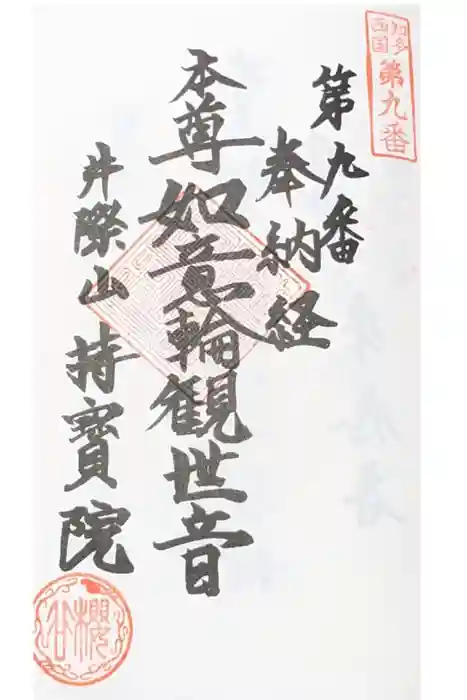 知多
西国
第九番
第九番
奉納経
本尊如意輪観世音
井際山 持寶院